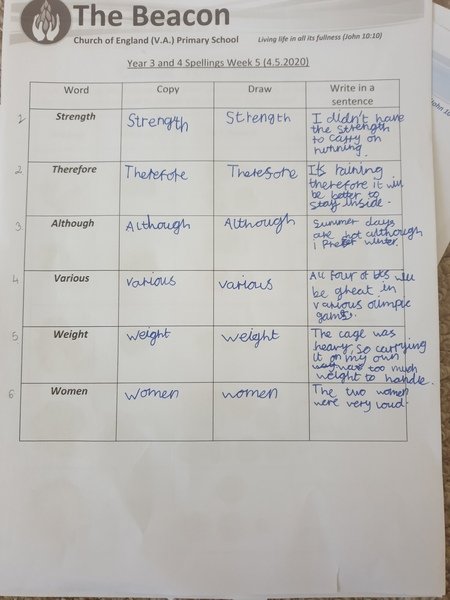 The Beacon
Church of England (V.A.) Primary School
Living life in all its fullness (John 10:10)
Year 3 and 4 Spellings Week 5 (4.5.2020)
Word Copy Draw Write in a
sentence
1 Strength Strength Strength I didn't have
the strength
to carry on
running.
2 Therefore Therefore Therefore It's raining
therefore it will
be better to
stay inside.
3. Although Although Although Summer days
are hot although
i prefer winter.
4 Various various various All four of us will
be great in
various olimpic
games.
5 Weight weight weight The cage was
heavy, so carrying
it on my own
was too much
weight to handle.
6 Women women women The two women
were very loud.